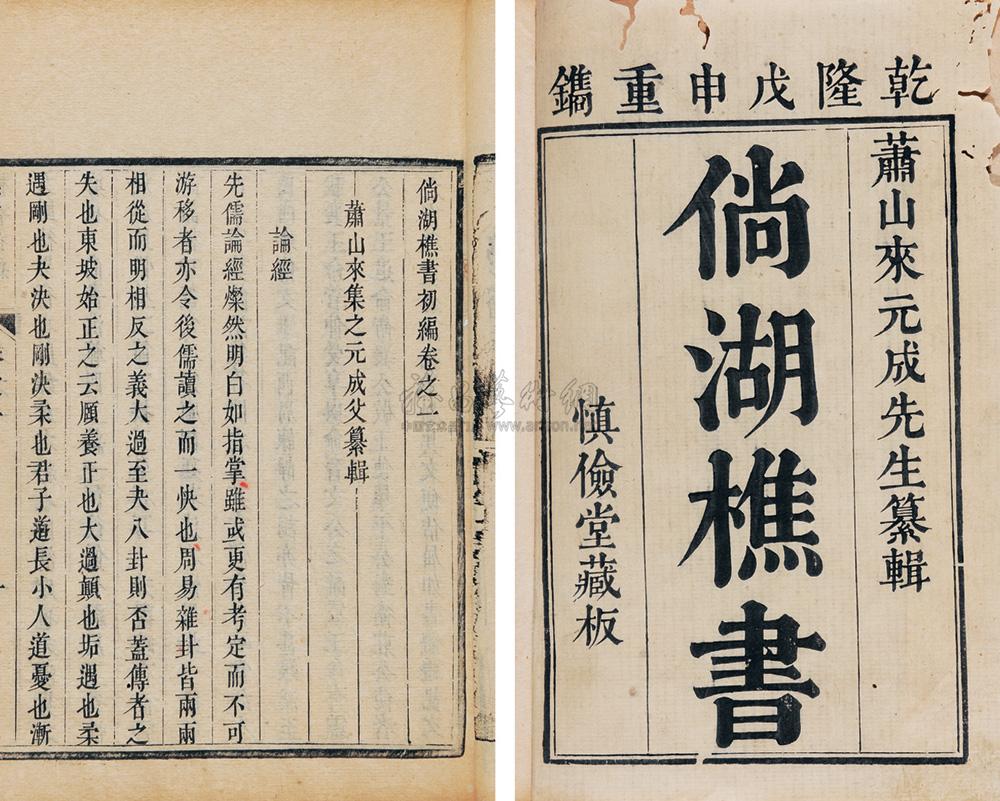 乾隆戊申重鐫
蕭山來元成先生纂輯
倘湖樵書
慎儉堂藏板
倘湖樵書初編卷之一
蕭山來集之元成父纂輯
論經
先儒論經燦然明白如指掌雖或更有考定而不可
游移者亦令後儒讀之而一快也周易雜卦皆兩兩
相從而明相反之義大過至夬八卦則否蓋傳者之
失也東坡始正之云頤養正也大過顛也垢遇也柔
遇剛也夬決也剛決柔也君子道長小人道憂也漸